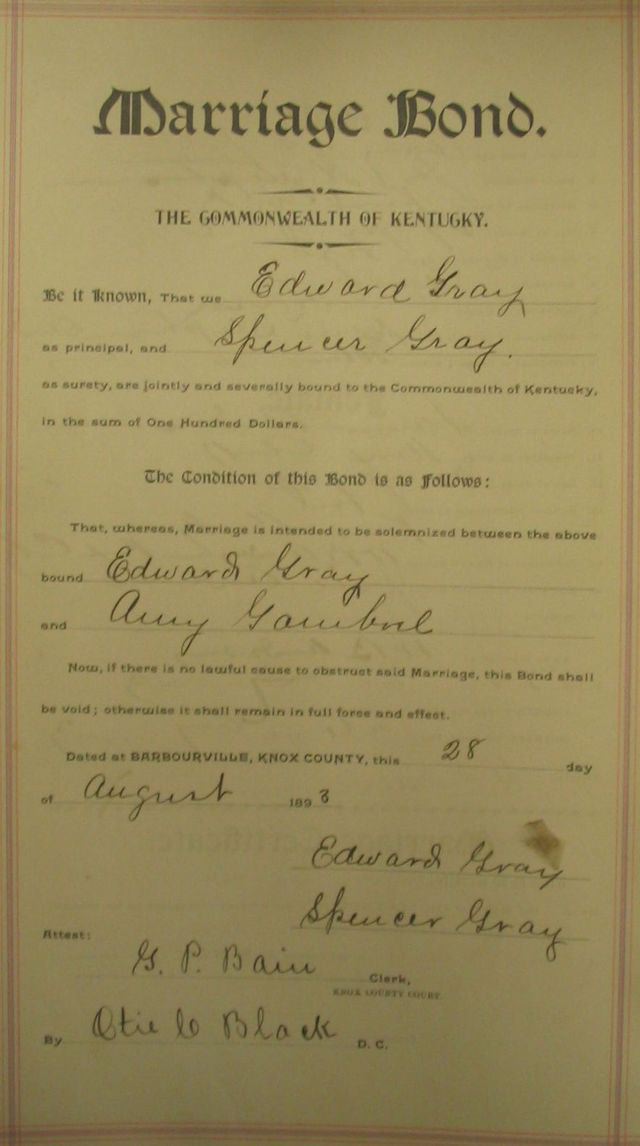 Marriage Bond.
THE COMMONWEALTH OF KENTUCKY.
Be it Known, That we Edward Gray
as principal, and Spencer Gray.
as surety, are jointly and severally bound to the Commonwealth of Kentucky,
in the sum of One Hundred Dollars.
The Condition of this Bond is as Follows:
That, whereas, Marriage is intended to be solemnized between the above
bound Edward Gray
and Amy Gambrel
Now, if there is no lawful cause to obstruct said Marriage, this Bond shall
be void; otherwise it shall remain in full force and effect.
Dated at BARBOURVILLE, KNOX COUNTY, this 28 day
of August 1893
Edward Gray
Spencer Gray
Attest:
G. P. Bain Clerk,
KNOX COUNTY COURT.
By Black D. C.